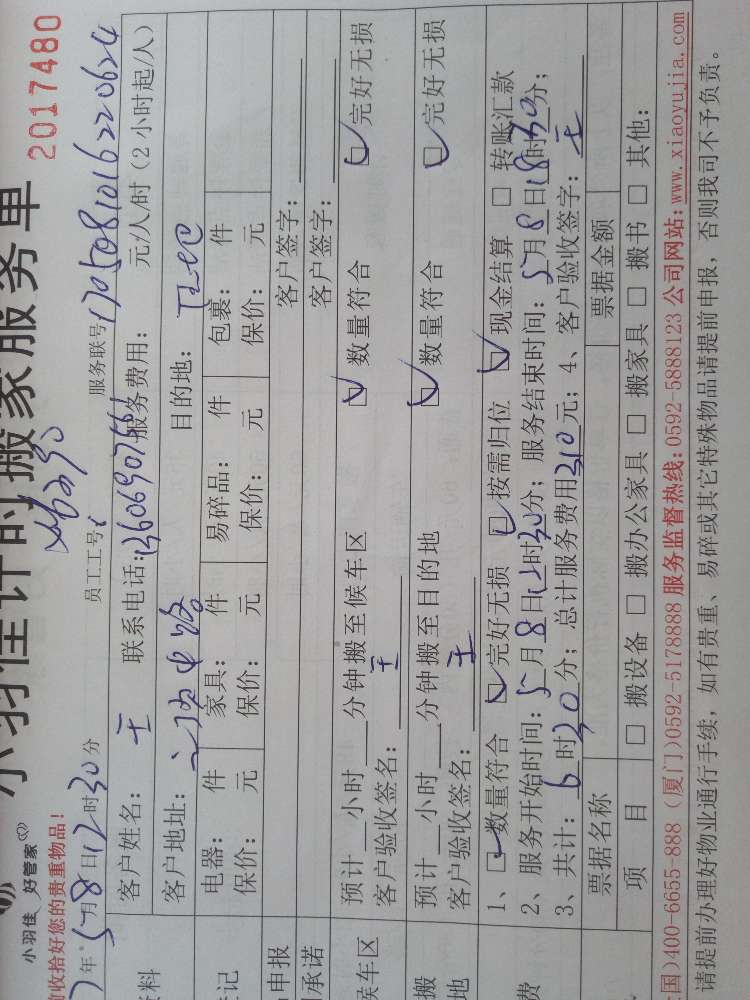 小羽佳计时搬家服务单
2017480
小羽佳 好管家
收拾好您的贵重物品!
年5月8日12时30分 员工工号: 服务联号1705081016220624
客户姓名: 王 联系电话: 服务费用: 元/人/时(2小时起/人)
客户地址: 目的地:
电器: 件 家具: 件 易碎品: 件 包裹: 件
保价: 元 保价: 元 保价: 元 保价: 元
申报 客户签字:
承诺 客户签字:
预计 小时 分钟搬至候车区 ☑数量符合 ☑完好无损
候车区 客户验收签名: 王
预计 小时 分钟搬至目的地 ☑数量符合 ☑完好无损
客户验收签名: 王
1、☑数量符合 ☑完好无损 ☑按需归位 ☑现金结算 □转账汇款
2、服务开始时间:5月8日12时30分; 服务结束时间:5月8日18时30分;
3、共计:6时30分; 总计服务费用310元; 4、客户验收签字: 王
票据名称 票据金额
项目 □搬设备 □搬办公家具 □搬家具 □搬书 □其他:
国)400-6655-888 (厦门)0592-5178888 服务监督热线:0592-5888123 公司网站:www.xiaoyujia.com
请提前办理好物业通行手续,如有贵重、易碎或其它特殊物品请提前申报,否则我司不予负责。